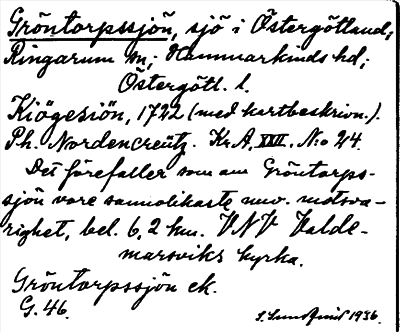 Gröntorpssjön, sjö i Östergötland,
Ringarum sn; Hammarkinds hd;
Östergötl. l.
Kiögesiön, 1722 (med kartbeskrivn.).
Ph. Nordencreütz. Kr.A. XXII. N:o 24.
Det förefaller som om Gröntorps-
sjön vore sannolikaste nuv. motsva-
righet, bel. 6,2 km. VNV Valde-
marsviks kyrka.
Gröntorpssjön ek.
G. 46.
1936.